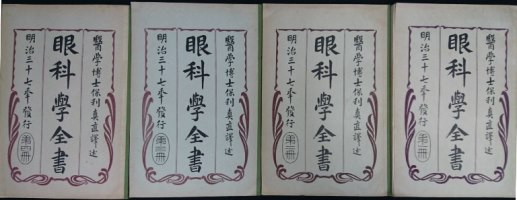 醫學博士保利眞直譯述
眼科學全書
明治三十七年發行
第一冊
醫學博士保利眞直譯述
眼科學全書
明治三十七年發行
第二冊
醫學博士保利眞直譯述
眼科學全書
明治三十七年發行
第三冊
醫學博士保利眞直譯述
眼科學全書
明治三十七年發行
第四冊